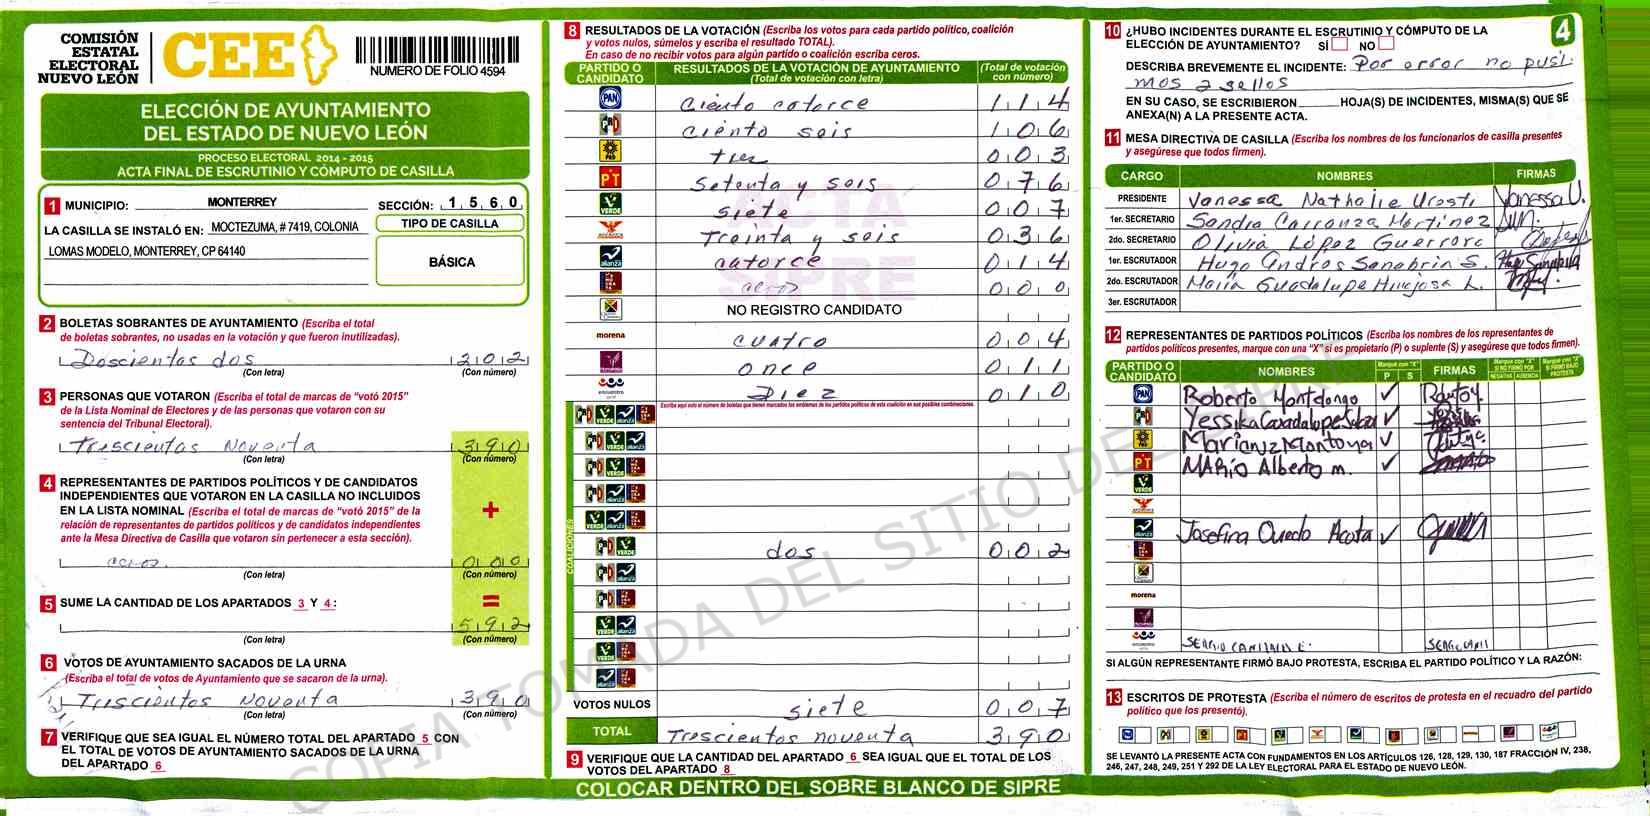 COMISIÓN
ESTATAL
ELECTORAL
NUEVO LEÓN
CEE
NUMERO DE FOLIO 4594
ELECCIÓN DE AYUNTAMIENTO
DEL ESTADO DE NUEVO LEÓN
PROCESO ELECTORAL 2014 - 2015
ACTA FINAL DE ESCRUTINIO Y CÓMPUTO DE CASILLA
1 MUNICIPIO: MONTERREY SECCIÓN: 1 5 6 0
LA CASILLA SE INSTALÓ EN: MOCTEZUMA, # 7419, COLONIA
LOMAS MODELO, MONTERREY, CP 64140
TIPO DE CASILLA
BÁSICA
2 BOLETAS SOBRANTES DE AYUNTAMIENTO (Escriba el total
de boletas sobrantes, no usadas en la votación y que fueron inutilizadas).
Doscientos dos 2 0 2
(Con letra) (Con número)
3 PERSONAS QUE VOTARON (Escriba el total de marcas de “votó 2015”
de la Lista Nominal de Electores y de las personas que votaron con su
sentencia del Tribunal Electoral).
Trescientos Noventa 3 9 0
(Con letra) (Con número)
4 REPRESENTANTES DE PARTIDOS POLÍTICOS Y DE CANDIDATOS
INDEPENDIENTES QUE VOTARON EN LA CASILLA NO INCLUIDOS
EN LA LISTA NOMINAL (Escriba el total de marcas de “votó 2015” de la
relación de representantes de partidos políticos y de candidatos independientes
ante la Mesa Directiva de Casilla que votaron sin pertenecer a esta sección).
+
0 0 0
(Con letra) (Con número)
5 SUME LA CANTIDAD DE LOS APARTADOS 3 Y 4:
=
5 9 2
(Con letra) (Con número)
6 VOTOS DE AYUNTAMIENTO SACADOS DE LA URNA
(Escriba el total de votos de Ayuntamiento que se sacaron de la urna).
Trescientos Noventa 3 9 0
(Con letra) (Con número)
7 VERIFIQUE QUE SEA IGUAL EL NÚMERO TOTAL DEL APARTADO 5 CON
EL TOTAL DE VOTOS DE AYUNTAMIENTO SACADOS DE LA URNA
DEL APARTADO 6
8 RESULTADOS DE LA VOTACIÓN (Escriba los votos para cada partido político, coalición
y votos nulos, súmelos y escriba el resultado TOTAL).
En caso de no recibir votos para algún partido o coalición escriba ceros.
PARTIDO O CANDIDATO RESULTADOS DE LA VOTACIÓN DE AYUNTAMIENTO (Total de votación con letra) (Total de votación con número)
PAN Ciento catorce 1 1 4
PRD Ciento seis 1 0 6
PRD tres 0 0 3
PT Setenta y seis 0 7 6
VERDE siete 0 0 7
Treinta y seis 0 3 6
alianza catorce 0 1 4
0 0 0
NO REGISTRO CANDIDATO
morena cuatro 0 0 4
once 0 1 1
encuentro Diez 0 1 0
Escriba aquí solo el número de boletas que tienen marcados los emblemas de los partidos políticos de esta coalición en sus posibles combinaciones.
COALICIONES
dos 0 0 2
VOTOS NULOS siete 0 0 7
TOTAL Trescientos noventa 3 9 0
9 VERIFIQUE QUE LA CANTIDAD DEL APARTADO 6 SEA IGUAL QUE EL TOTAL DE LOS
VOTOS DEL APARTADO 8
COLOCAR DENTRO DEL SOBRE BLANCO DE SIPRE
ACTA
SIPRE
COPIA TOMADA DEL SITIO DEL SIPRE
4
10 ¿HUBO INCIDENTES DURANTE EL ESCRUTINIO Y CÓMPUTO DE LA
ELECCIÓN DE AYUNTAMIENTO? SÍ NO
DESCRIBA BREVEMENTE EL INCIDENTE: Por error no pusi
mos 2 sellos
EN SU CASO, SE ESCRIBIERON HOJA(S) DE INCIDENTES, MISMA(S) QUE SE
ANEXA(N) A LA PRESENTE ACTA.
11 MESA DIRECTIVA DE CASILLA (Escriba los nombres de los funcionarios de casilla presentes
y asegúrese que todos firmen).
CARGO NOMBRES FIRMAS
PRESIDENTE Vanessa Nathalie Uresti Vanessa U.
1er. SECRETARIO Sandra Carranza Martinez
2do. SECRETARIO Olivia López Guerrero
1er. ESCRUTADOR Hugo Andres Sanabria S.
2do. ESCRUTADOR Maria Guadalupe Hinojosa L.
3er. ESCRUTADOR
12 REPRESENTANTES DE PARTIDOS POLÍTICOS (Escriba los nombres de los representantes de
partidos políticos presentes, marque con una “X” si es propietario (P) o suplente (S) y asegúrese que todos firmen).
PARTIDO O CANDIDATO NOMBRES Marque con “X” P S FIRMAS Marque con “X” SI NO FIRMÓ POR NEGATIVA AUSENCIA Marque con “X” SI FIRMÓ BAJO PROTESTA
PAN Roberto Montelongo ✓
Yessika Guadalupe ✓
Maricruz Montoya ✓
PT Mario Alberto M. ✓
VERDE
alianza Josefina Oviedo Acosta ✓
morena
SI ALGÚN REPRESENTANTE FIRMÓ BAJO PROTESTA, ESCRIBA EL PARTIDO POLÍTICO Y LA RAZÓN:
13 ESCRITOS DE PROTESTA (Escriba el número de escritos de protesta en el recuadro del partido
político que los presentó).
SE LEVANTÓ LA PRESENTE ACTA CON FUNDAMENTOS EN LOS ARTÍCULOS 126, 128, 129, 130, 187 FRACCIÓN IV, 238,
246, 247, 248, 249, 251 Y 292 DE LA LEY ELECTORAL PARA EL ESTADO DE NUEVO LEÓN.